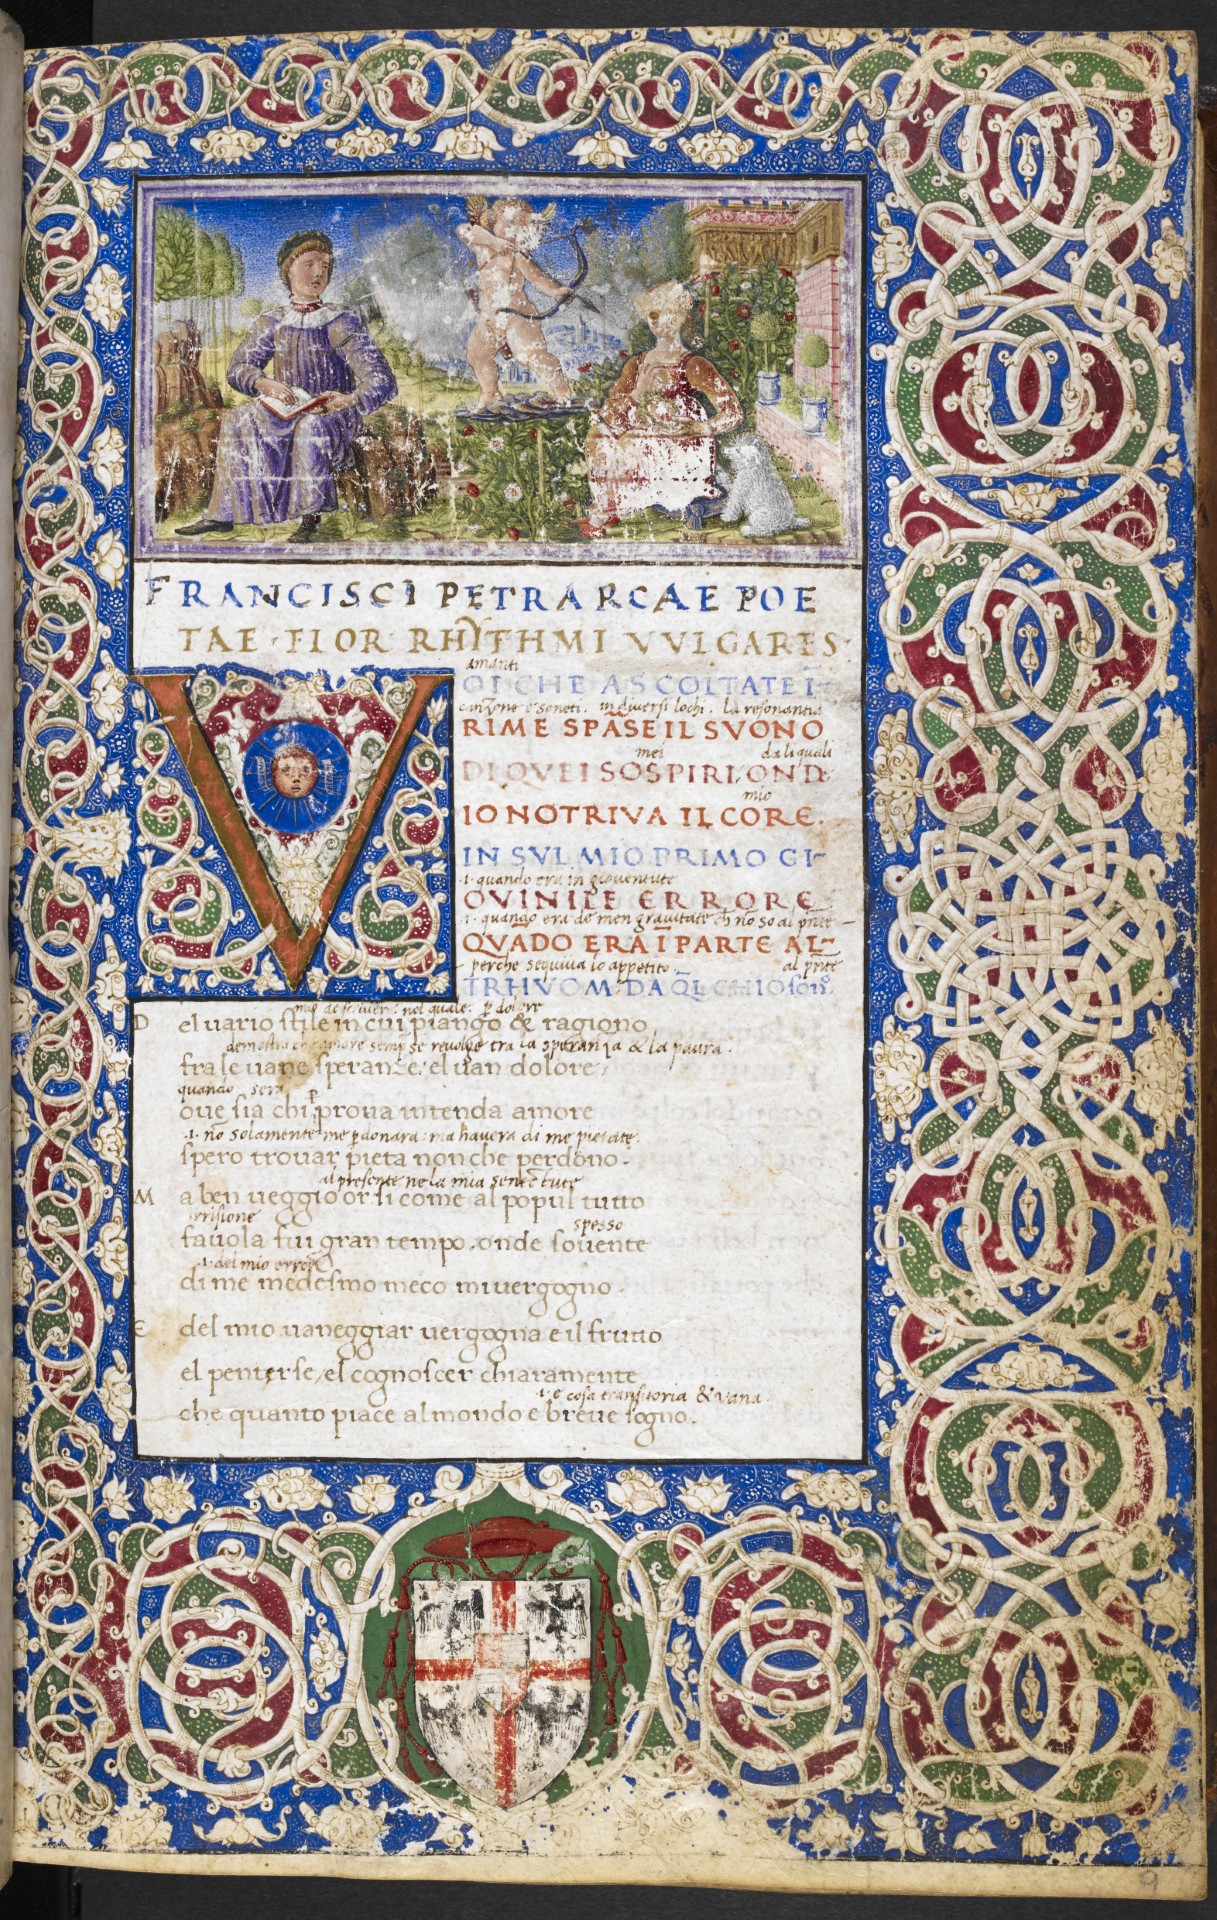 FRANCISCI PETRARCAE POE
TAE · FLOR RHYTHMI VVLGARES ·
amanti
V OI CHE ASCOLTATE I-
canzone e soneti . in diversi lochi . la resonantia
RIME SPASE IL SVONO
mei da li quali
DI QVEI SOSPIRI, OND
mio
IO NOTRIVA IL CORE .
IN SVL MIO PRIMO GI-
.i. quando era in gioventute
OVINILE ERRORE
.i. quando era de men gravitate ch no so al pnte
QVADO ERA I PARTE AL-
perche sequiva lo appetito al pnte
TRHVOM · DA QL CHIO son.
nel quale . p dolore
D el uario stile in cui piango & ragiono
amore semp se revolve tra la speranza & la paura .
fra le uane speranze, el uan dolore,
quando sera
oue sia chi p proua intenda amore
.i. no solamente me pdonara : ma havera di me pietate .
spero trouar pieta non che perdono .
al presente ne la mia senectute
M a ben ueggio or si come al popul tutto
irrisione spesso
fauola fui gran tempo . onde souente
.i. del mio errore
di me medesmo meco mi uergogno .
E del mio uaneggiar uergogna e il frutto
el penterse, el cognoscer chiaramente
.i. e cosa transitoria & vana .
che quanto piace al mondo e breue sogno .
9